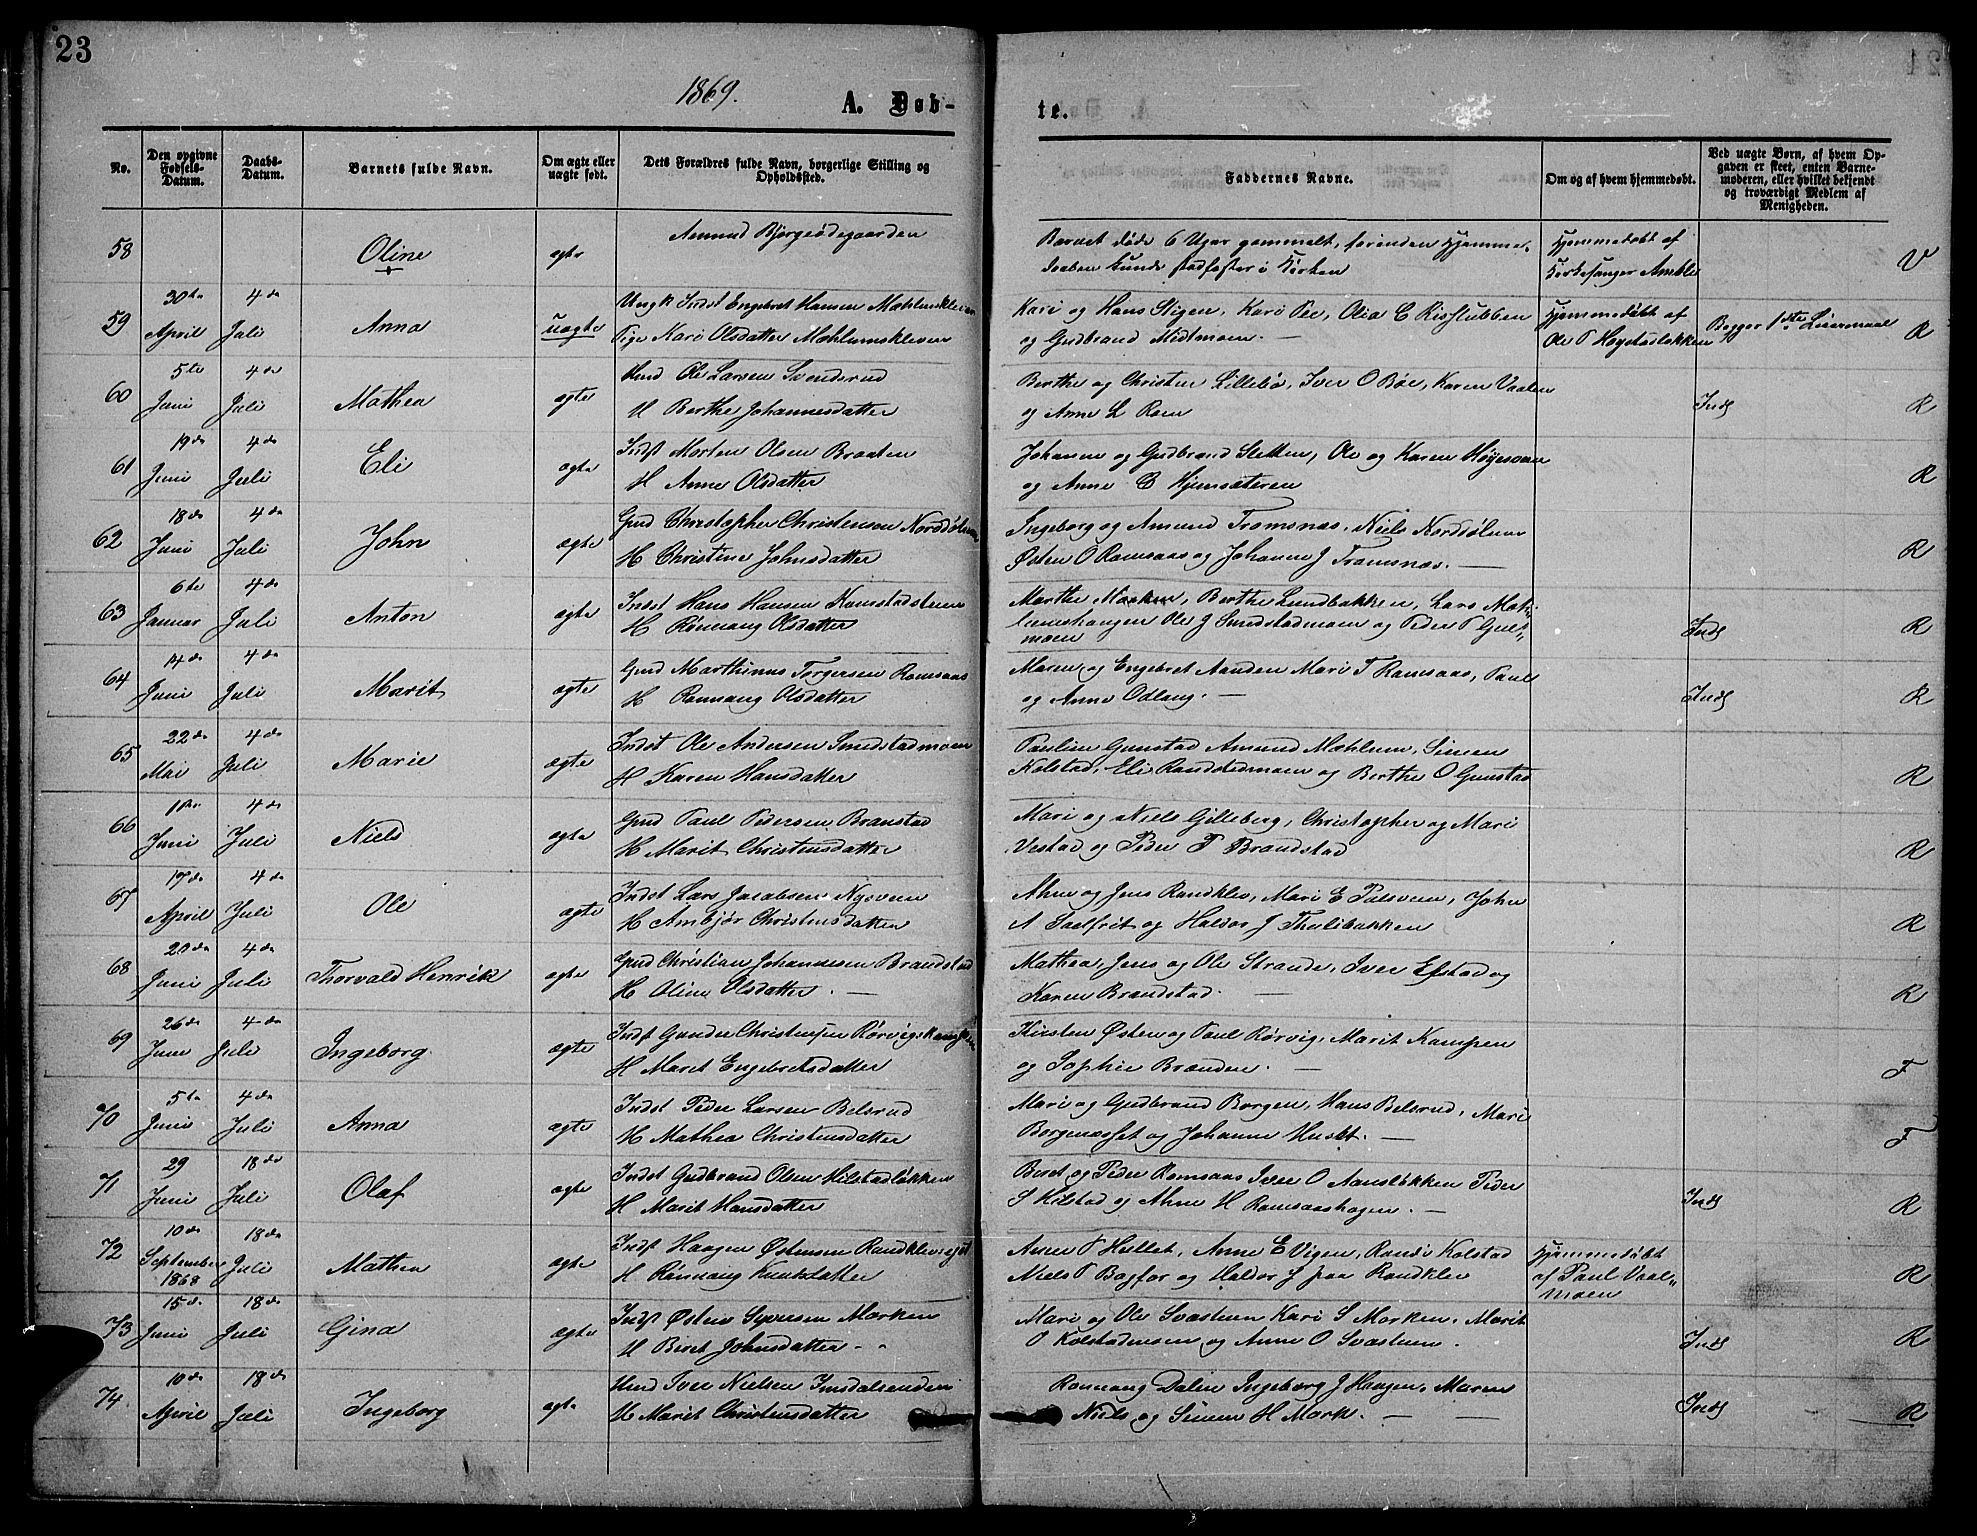 23
1869.
A. Døb-
te.
No.
Den opgivne Fødsels-Datum.
Daabs-Datum.
Barnets fulde Navn.
Om ægte eller uægte født.
Dets Forældres fulde Navn, borgerlige Stilling og Opholdssted.
Faddernes Navne.
Om og af hvem hjemmedøbt.
Ved uægte Børn, af hvem Opgaven er skeet, enten Barnemoderen, eller hvilket bekjendt og troværdigt Medlem af Menigheden.
58 Oline ægte Amund Bjørgeødegaarden
Barnet døde 6 Uger gammelt, førenden Hjemme-
daaben kunde stadfæstes i Kirken
Hjemmedøbt af
Kirkesanger Amble
V
59 30te April 4de Juli Anna uægte
Ungk Indst Engebret Hansen Mæhlumskleven
Pige Kari Olsdatter Mæhlumskleven
Kari og Hans Stigen, Kari Pee, Olia C Risstubben
og Gudbrand Midtmoen.
Hjemmedøbt af
Ole P Høystadløkken
Begges 1ste Leiermaal
R
60 5te Juni 4de Juli Mathea ægte
Ole Larsen Svenderud
H Berthe Johannesdatter
Berthe og Christen Lillebø, Iver O Bøe, Karen Vaalen
og Anne L Roen
Inds
R
61 19de Juni 4de Juli Eli ægte
Indst Morten Olsen Braaten
H Anne Olsdatter
Johanne og Gudbrand Sletten, Ole og Karen Høyesveen
og Anne C Hjemsæteren
R
62 18de Juni 4de Juli John ægte
Gmd Christopher Christensen Nordsølien
H Christine Johnsdatter
Ingeborg og Amund Tromsnæs, Niels Nordsølien
Østen O Ramsaas og Johanne J Tromsnæs.
R
63 6te Januar 4de Juli Anton ægte
Indst Hans Hansen Kamstadsteen
H Rønnaug Olsdatter
Marthe Morken, Berthe Lundbakken, Lars Mæh-
lumshaugen Ole J Smedstadmoen og Peder P Gul-
moen
Inds
R
64 14de Juni 4de Juli Marit ægte
Gmd Marthinus Torgersen Ramsaas
H Rønnaug Olsdatter
Maren og Engebret Aanden Mari T Ramsaas, Paul
og Anne Odlaug.
Inds
R
65 22de Mai 4de Juli Marie ægte
Indst Ole Andersen Smedstadmoen
H Karen Hansdatter
Pauline Gunstad Amund Mæhlum, Simen
Kolstad, Eli Randstedmoen og Berthe O Gunstad
R
66 1ste Juni 4de Juli Niels ægte
Gmd Paul Pedersen Branstad
H Marit Christensdatter
Mari og Niels Gilleberg, Christopher og Mari
Vestad og Peder P Brandstad
R
67 17de April 4de Juli Ole ægte
Indst Lars Jacobsen Nysveen
H Ambjør Christensdatter
Ahne og Jens Randklev, Mari E Pulsveen, John
A Saalfrit og Haldor J Thulibakken
R
68 20de Juni 4de Juli Thorvald Henrik ægte
Gmd Christian Johannesen Brandstad
H Oline Olsdatter.
Mathea, Jens og Ole Strande, Iver Efstad og
Karen Brandstad.
R
69 26de Juni 4de Juli Ingeborg ægte
Indst Gunder Christensen Rørvigskampen
H Marit Engebretsdatter
Kirsten Østen og Paul Rørvig, Marit Kampen
og Sophie Brænden.
F
70 5te Juni 4de Juli Anna ægte
Indst Peder Larsen Belsrud
H Mathea Christensdatter
Mari og Gudbrand Borgen, Hans Belsrud, Mari
Borgenæsset og Johanne Huset.
F
71 29 Juni 18de Juli Olaf ægte
Indst Gudbrand Olsen Kilstadløkken
H Marit Hansdatter
Beret og Peder Ramsaas Iver O Aansløkken Peder
S Kilstad og Ahne H Ramsaashagen.
Inds
R
72 10de September 1868 18de Juli Mathea ægte
Indst Haagen Østensen Randklevsejet
H Rønnaug Knutsdatter
Anne P Hullet, Anne E Vigen, Randi Kolstad
Niels P Bagfor og Haldor J paa Randklev
Hjemmedøbt
af Paul Vaal-
moen
R
73 15de Juni 18de Juli Gina ægte
Indst Østen Syversen Morken
H Beret Johnsdatter
Mari og Ole Svasteen Kari S Morken, Marit
O Kolstadensen og Anne O Svasteen.
Inds
R
74 10de April 18de Juli Ingeborg ægte
Iver Nielsen Imsdalsenden
H Marit Christensdatter
Rønnaug Dalen Ingeborg J Haagen, Maren
Niels og Simen H Mark.
Inds
R